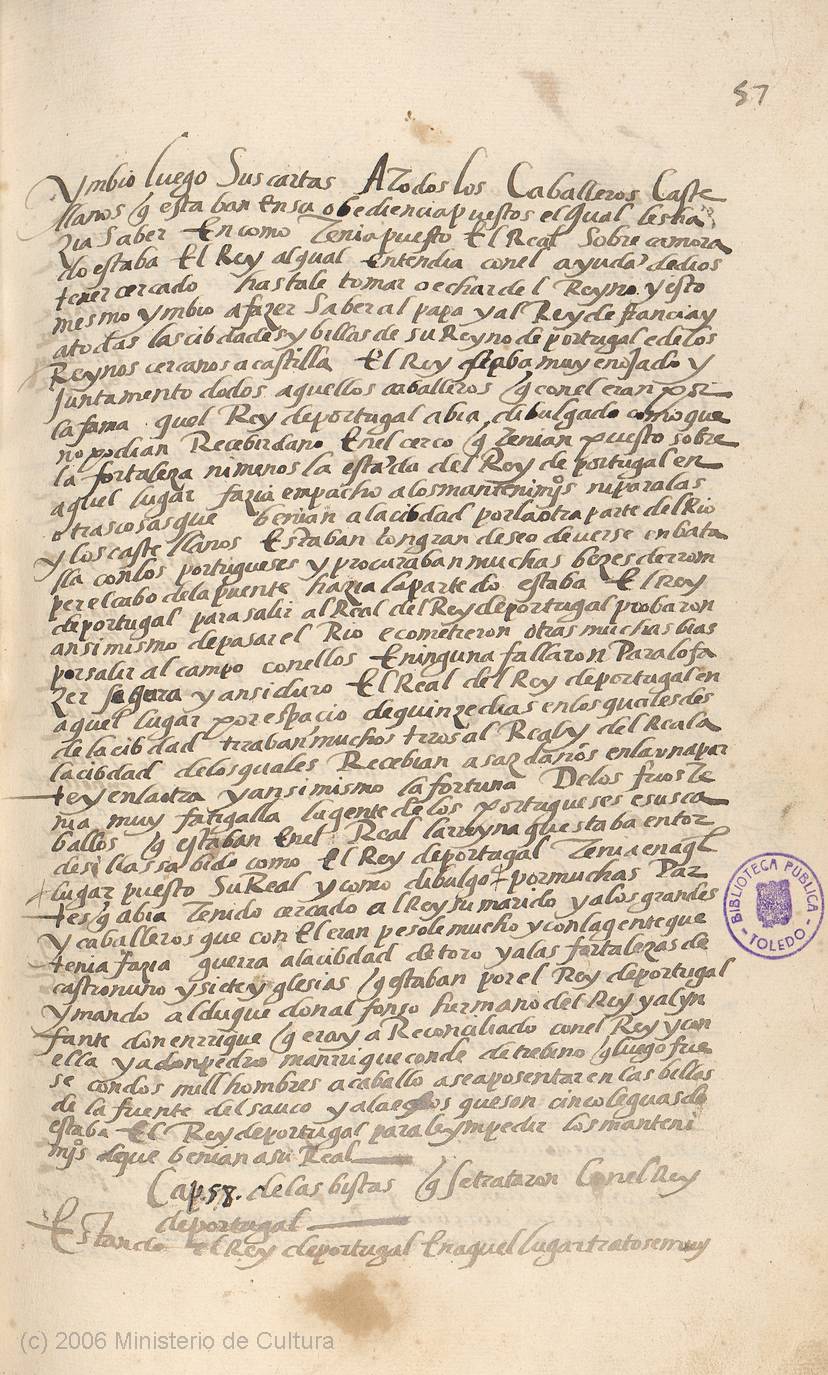 57
ymbio luego Sus cartas A todos los Caballeros Caste
llanos q̃ estaban En su obediencia puestos el qual les ha
zia Saber En como Tenia puesto El Real Sobre camora
do estaba El Rey al qual Entendia con el ayuda de dios
tener cercado hasta le tomar o echar del Reyno. y esto
mesmo ymbio a fazer Saber al papa y al Rey de francia y
a todas las cibdades y billas de su Reyno de portugal e de los
Reynos cercanos a castilla El Rey estaba muy enojado y
Juntamente todos aquellos caballeros q̃ con el eran por
la fama quel Rey de portugal abia dibulgado como que
no podian Recebir dano En el cerco q̃ Tenian puesto sobre
la fortaleza ni menos la estada del Rey de portugal en
aquel lugar fazia empacho a los mantenimjos ni para las
otras cosas que benian a la cibdad por la otra parte del Rio
y los castellanos Estaban con gran deseo de verse en bata
lla con los portugueses y procuraban muchas bezes de rom
per el cabo de la puente hazia la parte do estaba El rey
de portugal para salir al Real del Rey de portugal probaron
ansi mismo de pasar el Rio e cometieron otras muchas bias
por salir al campo con ellos E ninguna fallaron Para lo fa
zer segura y ansi duro El Real del Rey de portugal en
aquel lugar por espacio de quinze dias en los quales des
de la cibdad tiraban muchos tiros al Real y del Real a
la cibdad de los quales Recebian asaz daños en la vna par
te y en la otra y ansi mismo la fortuna De los frios te
nia muy fatigalla la gente de los portugueses e sus ca
ballos q̃ estaban En el Real la rreyna que staba en tor
desillas sabido como El Rey de portugal Tenia en aql̃
lugar puesto Su Real y como dibulgo por muchas Par
tes q̃ abia Tenido cercado al Rey su marido y a los grandes
y caballeros que con El eran pesole mucho y con la gente que
tenia fazia guerra a la cibdad de toro y a las fortalezas de
castronuño y siete yglesias q̃ estaban por el Rey de portugal
y mando al duque don alfonso hermano del Rey y al yn
fante don enrrique q̃ era ya Reconciliado con el Rey y con
ella y a don pedro manrrique conde de trebino q̃ luego fue
se con dos mill hombres a caballo a se aposentar en las billas
de la fuente del sauco y alaejos que son cinco leguas do
estaba El Rey de portugal para le ympedir los manteni
mjos de que benian a su Real
Cap. 58. de las bistas q̃ se trataron Con el Rey
de portugal
Estando el Rey de portugal En aquel lugar tratose muy
BIBLIOTECA PUBLICA
TOLEDO
(c) 2006 Ministerio de Cultura